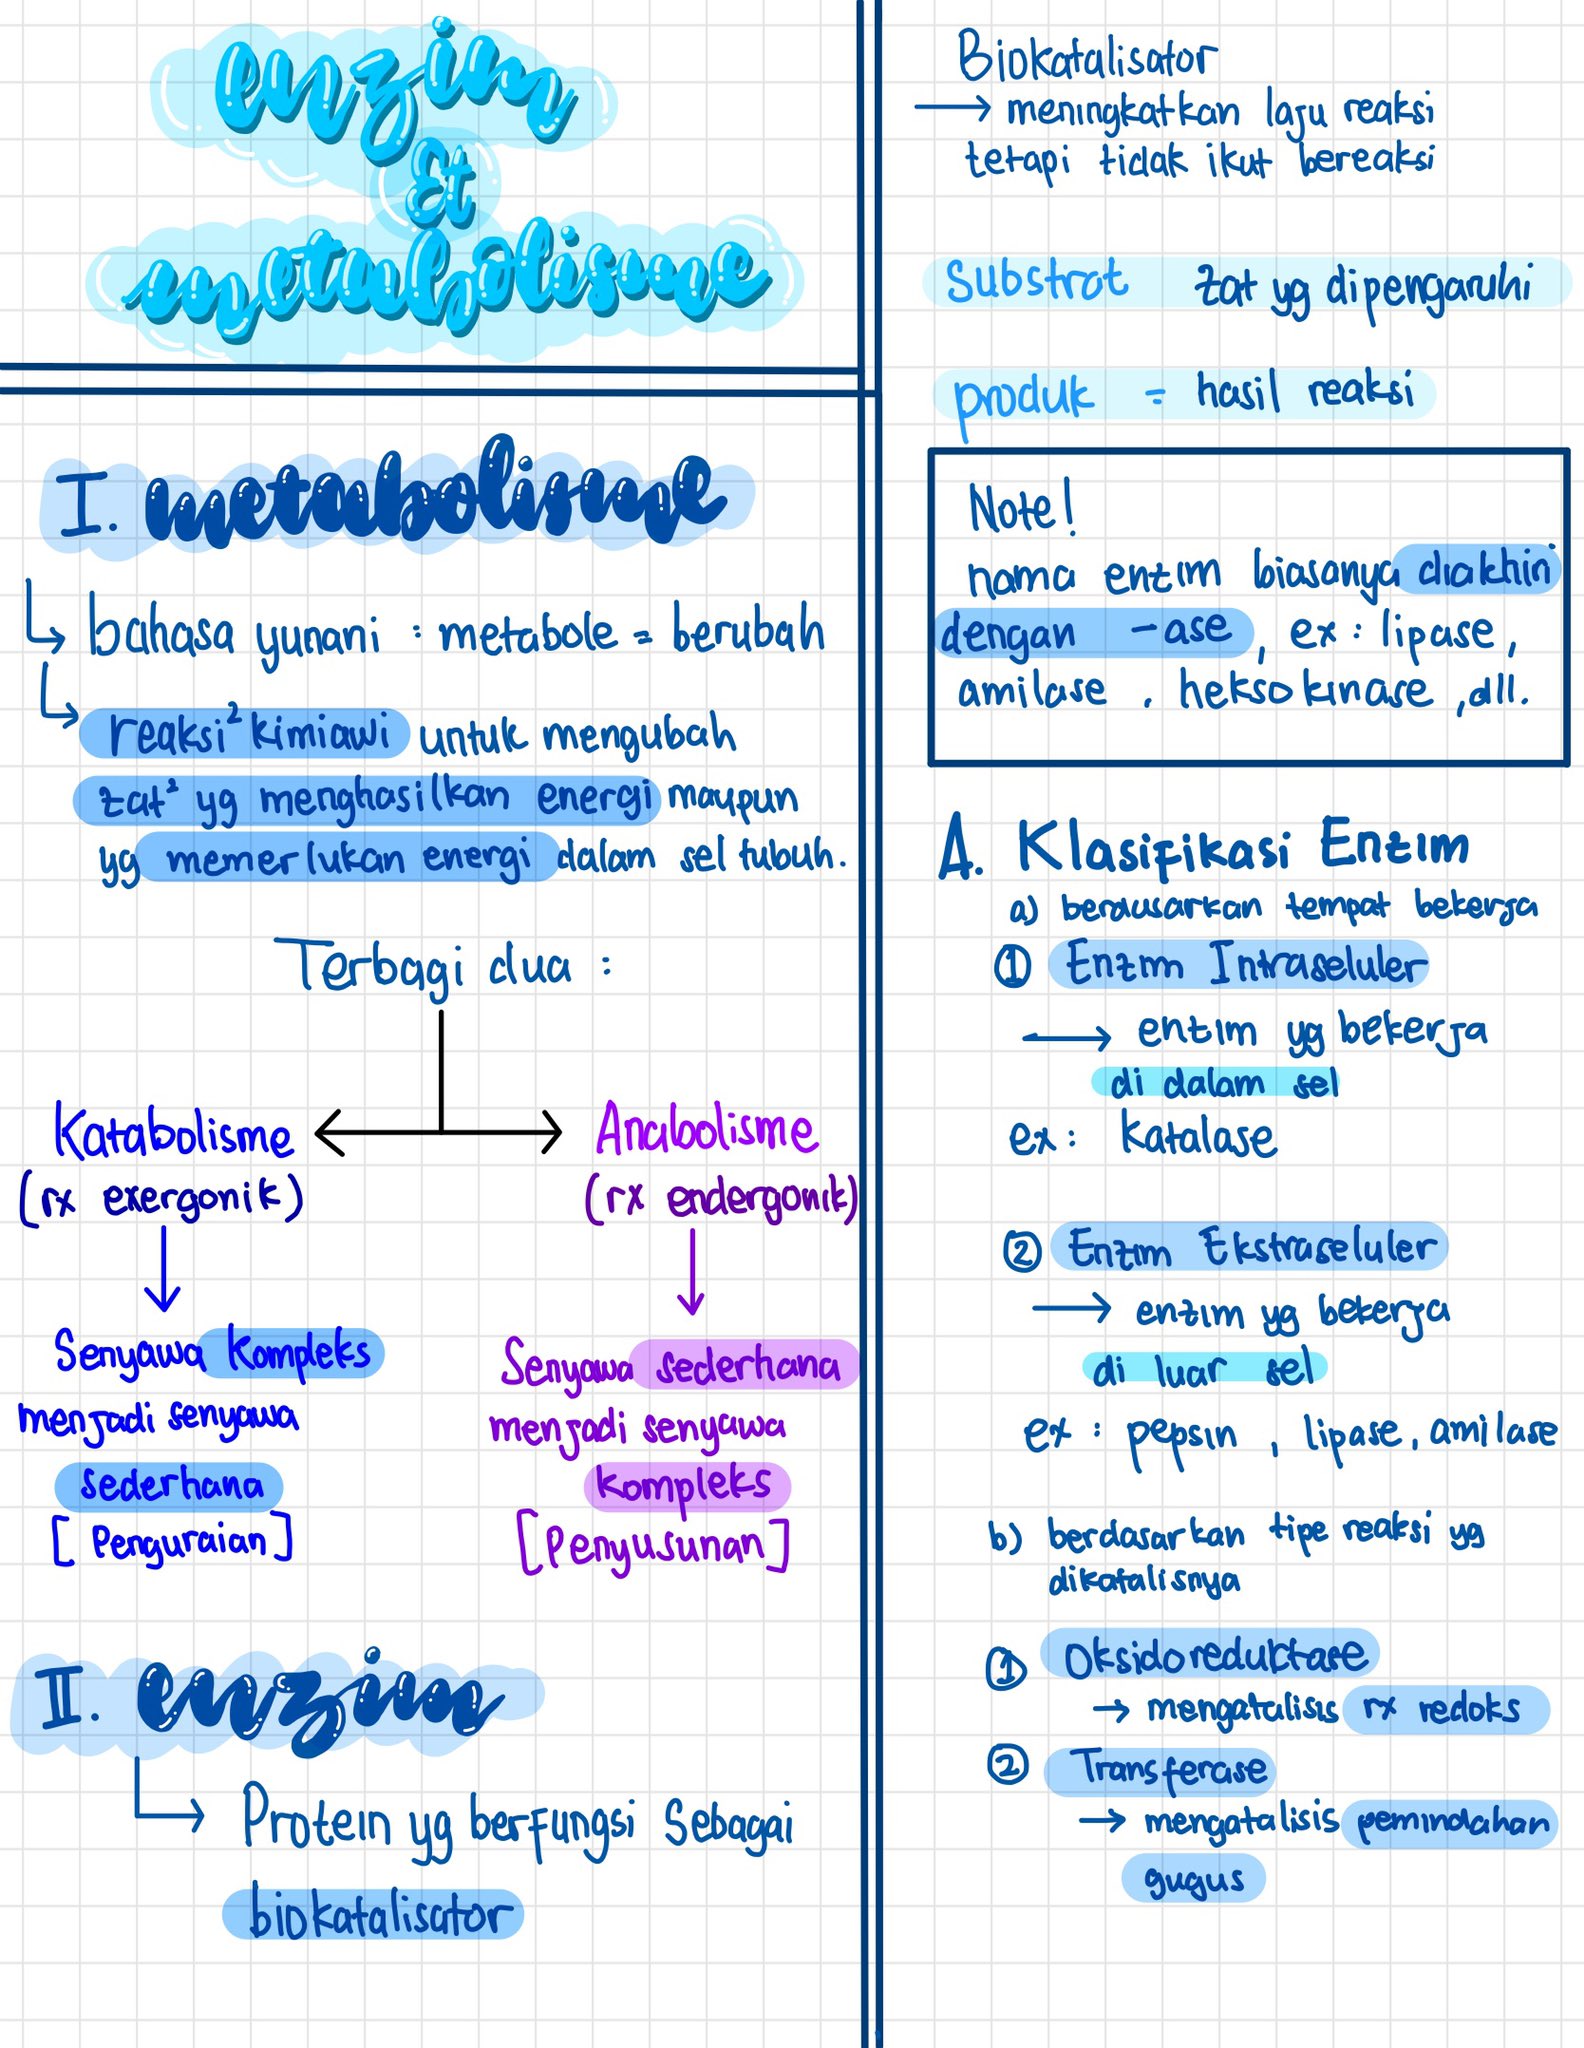 enzim
Et
metabolisme
I. metabolisme
bahasa yunani : metabole = berubah
reaksi² kimiawi untuk mengubah
zat² yg menghasilkan energi maupun
yg memerlukan energi dalam sel tubuh.
Terbagi dua :
Katabolisme
(rx exergonik)
Senyawa Kompleks
menjadi senyawa
sederhana
[Penguraian]
Anabolisme
(rx endergonik)
Senyawa sederhana
menjadi senyawa
kompleks
[Penyusunan]
II. enzim
Protein yg berfungsi Sebagai
biokatalisator
Biokatalisator
→ meningkatkan laju reaksi
tetapi tidak ikut bereaksi
Substrat zat yg dipengaruhi
produk = hasil reaksi
Note!
nama enzim biasanya diakhiri
dengan -ase, ex : lipase,
amilase, heksokinase, dll.
A. Klasifikasi Enzim
a) berdasarkan tempat bekerja
① Enzim Intraseluler
→ enzim yg bekerja
di dalam sel
ex : katalase
② Enzim Ekstraseluler
→ enzim yg bekerja
di luar sel
ex : pepsin, lipase, amilase
b) berdasarkan tipe reaksi yg
dikatalisnya
① Oksidoreduktase
→ mengatalisis rx redoks
② Transferase
→ mengatalisis pemindahan
gugus